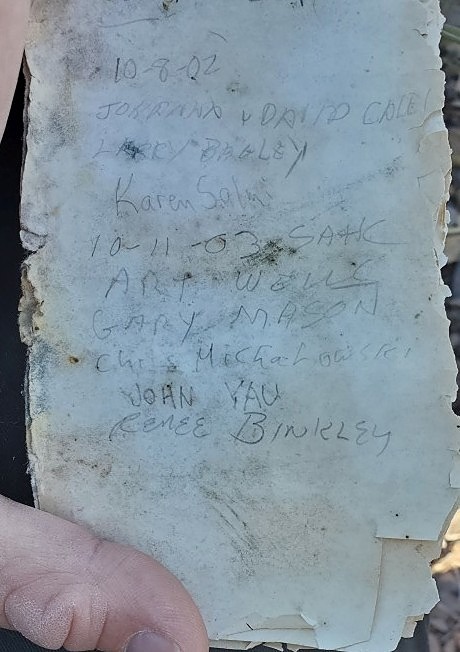 10-8-02
JOHANNA & DAVID CALEF
LARRY BEGLEY
Karen
10-11-03 SAHC
ART WELLS
GARY MASON
Chris Michalowski
JOHN YAU
RENEE BINKLEY